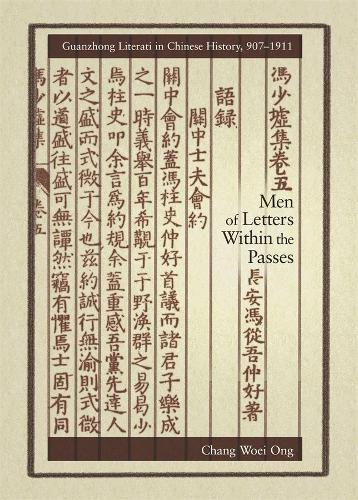 Guanzhong Literati in Chinese History, 907–1911
馮少墟集卷五
長安馮從吾仲好著
語錄
關中士夫會約
關中會約蓋馮柱史仲好首議而諸君子樂成
之一時義舉百年希覯于于野渙群之易易少
焉柱史叩余言爲約規余蓋重感吾黨先達人
文之盛而式微于今也茲約誠行無渝則式微
者以遒盛往盛可無譚然竊有懼焉士固有同
馮少墟集 卷五
Men
of Letters
Within the
Passes
Chang Woei Ong